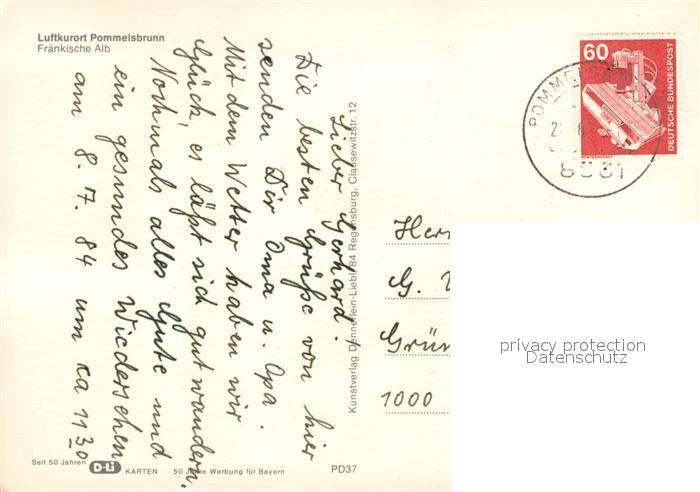 Luftkurort Pommelsbrunn
Fränkische Alb
Lieber Gerhard!
Die besten Grüße von hier
senden Dir Oma u. Opa.
Mit dem Wetter haben wir
Glück, es läßt sich gut wandern.
Nochmals alles Gute und
ein gesundes Wiedersehen
am 8. 7. 84 um ca 11 30
Kunstverlag Dennerlein-Liebl, 84 Regensburg, Clausewitzstr. 12
60
DEUTSCHE BUNDESPOST
POMME
Herr
G.
Grün
1000
privacy protection
Datenschutz
Seit 50 Jahren D-Li KARTEN 50 Jahre Werbung für Bayern
PD37